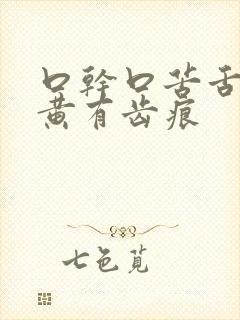 口幹口苦舌
黄有齿痕
七色觅